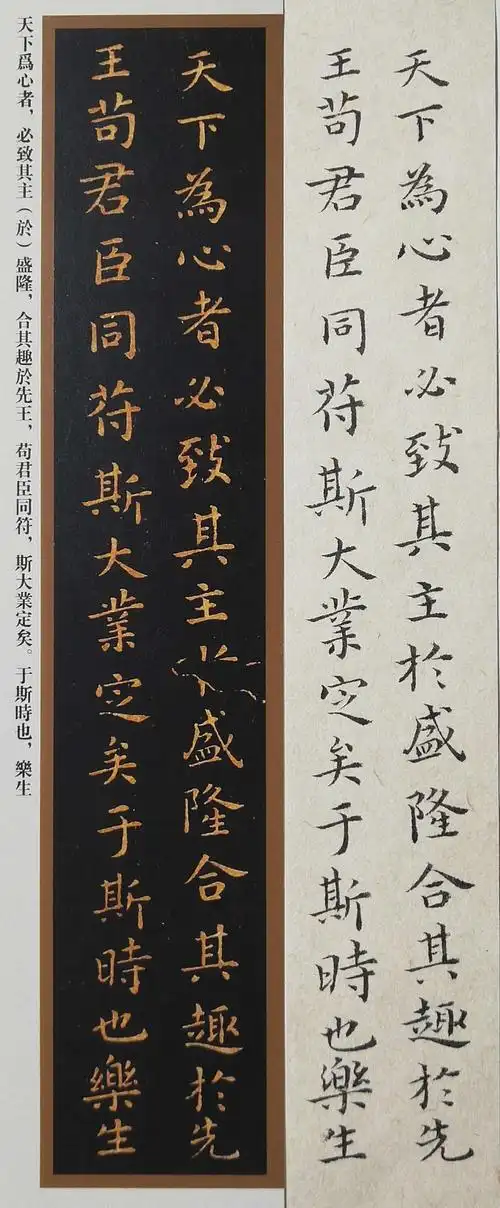 天為下心者必致其主於盛隆合其趣於先
王苟君臣同符斯大業定矣于斯時也樂生
天下為心者必致其主盛隆合其趣於先
王苟君臣同符斯大業定矣于斯時也樂生
天下爲心者，必致其主（於）盛隆，合其趣於先王，苟君臣同符，斯大業定矣。于斯時也，樂生